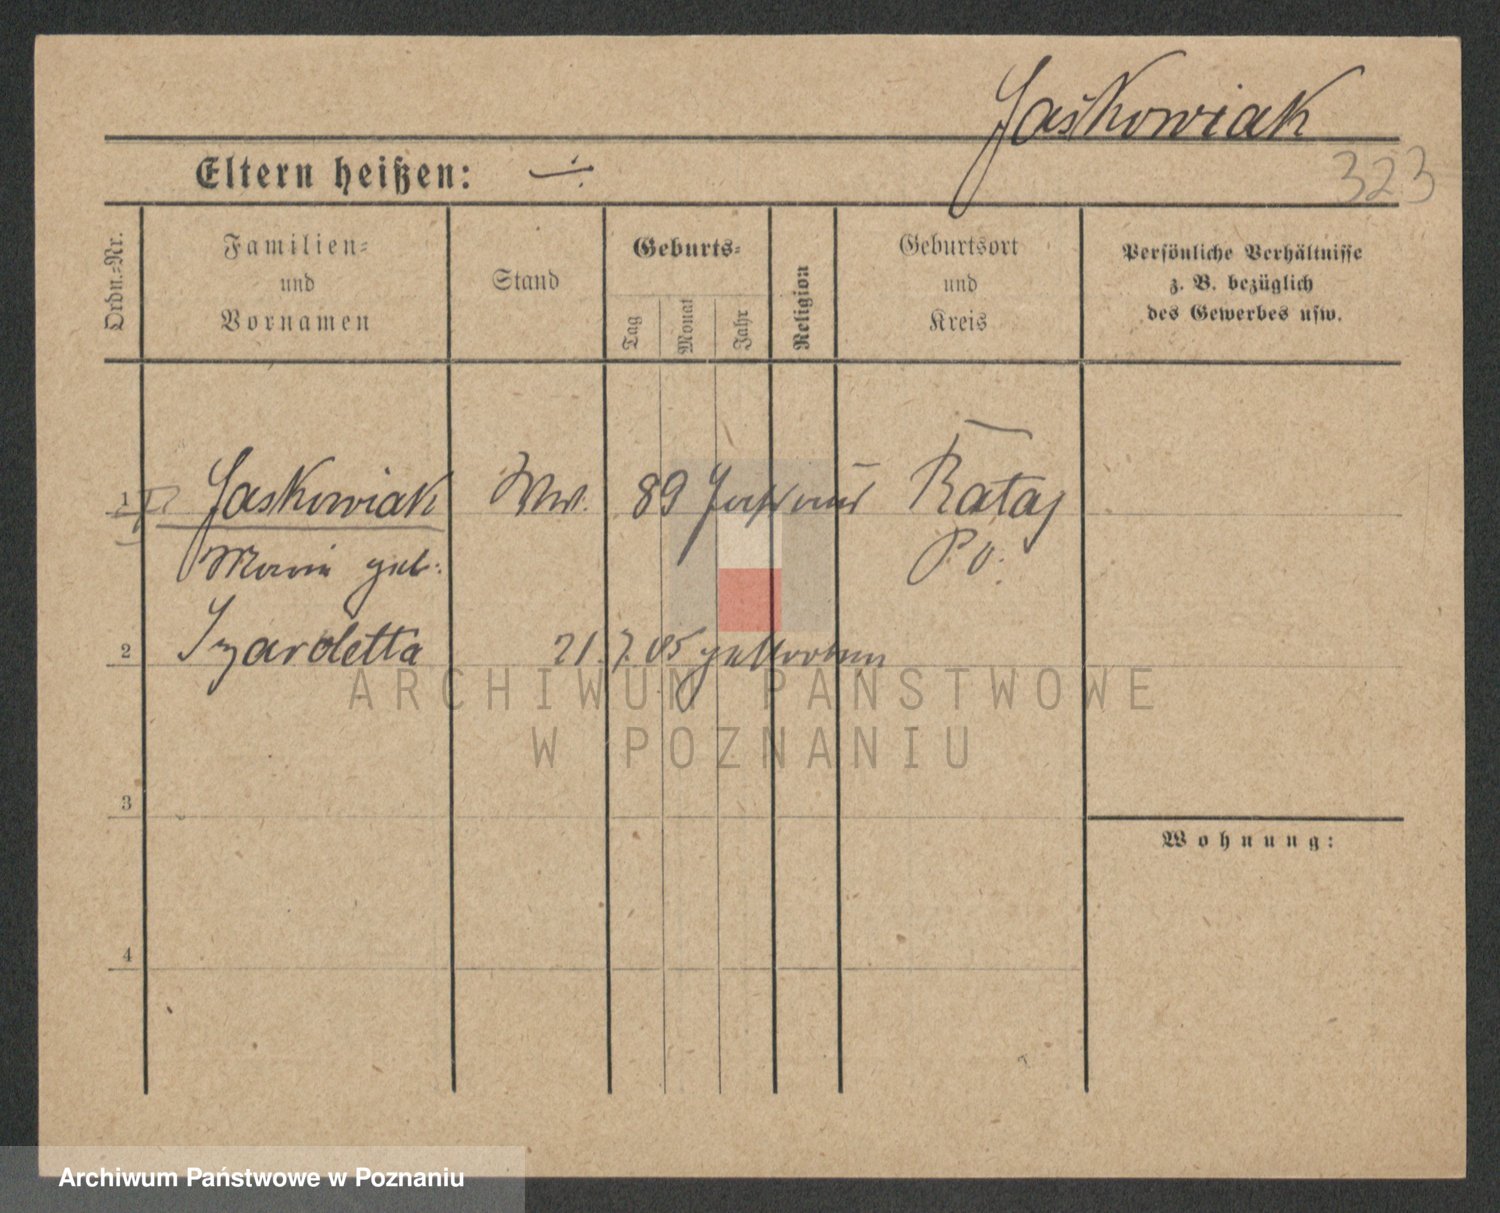 Jaśkowiak
323
Eltern heißen: ÷
Ordn.-Nr.
Familien-
und
Vornamen
Stand
Geburts-
Tag
Monat
Jahr
Religion
Geburtsort
und
Kreis
Persönliche Verhältnisse
z. B. bezüglich
des Gewerbes usw.
1 Jaskowiak Ww. 89 Jahr Rataj
Marie geb. Po.
2 21.7.05 gestorben
ARCHIWUM PAŃSTWOWE
W POZNANIU
3
Wohnung:
4
Archiwum Państwowe w Poznaniu